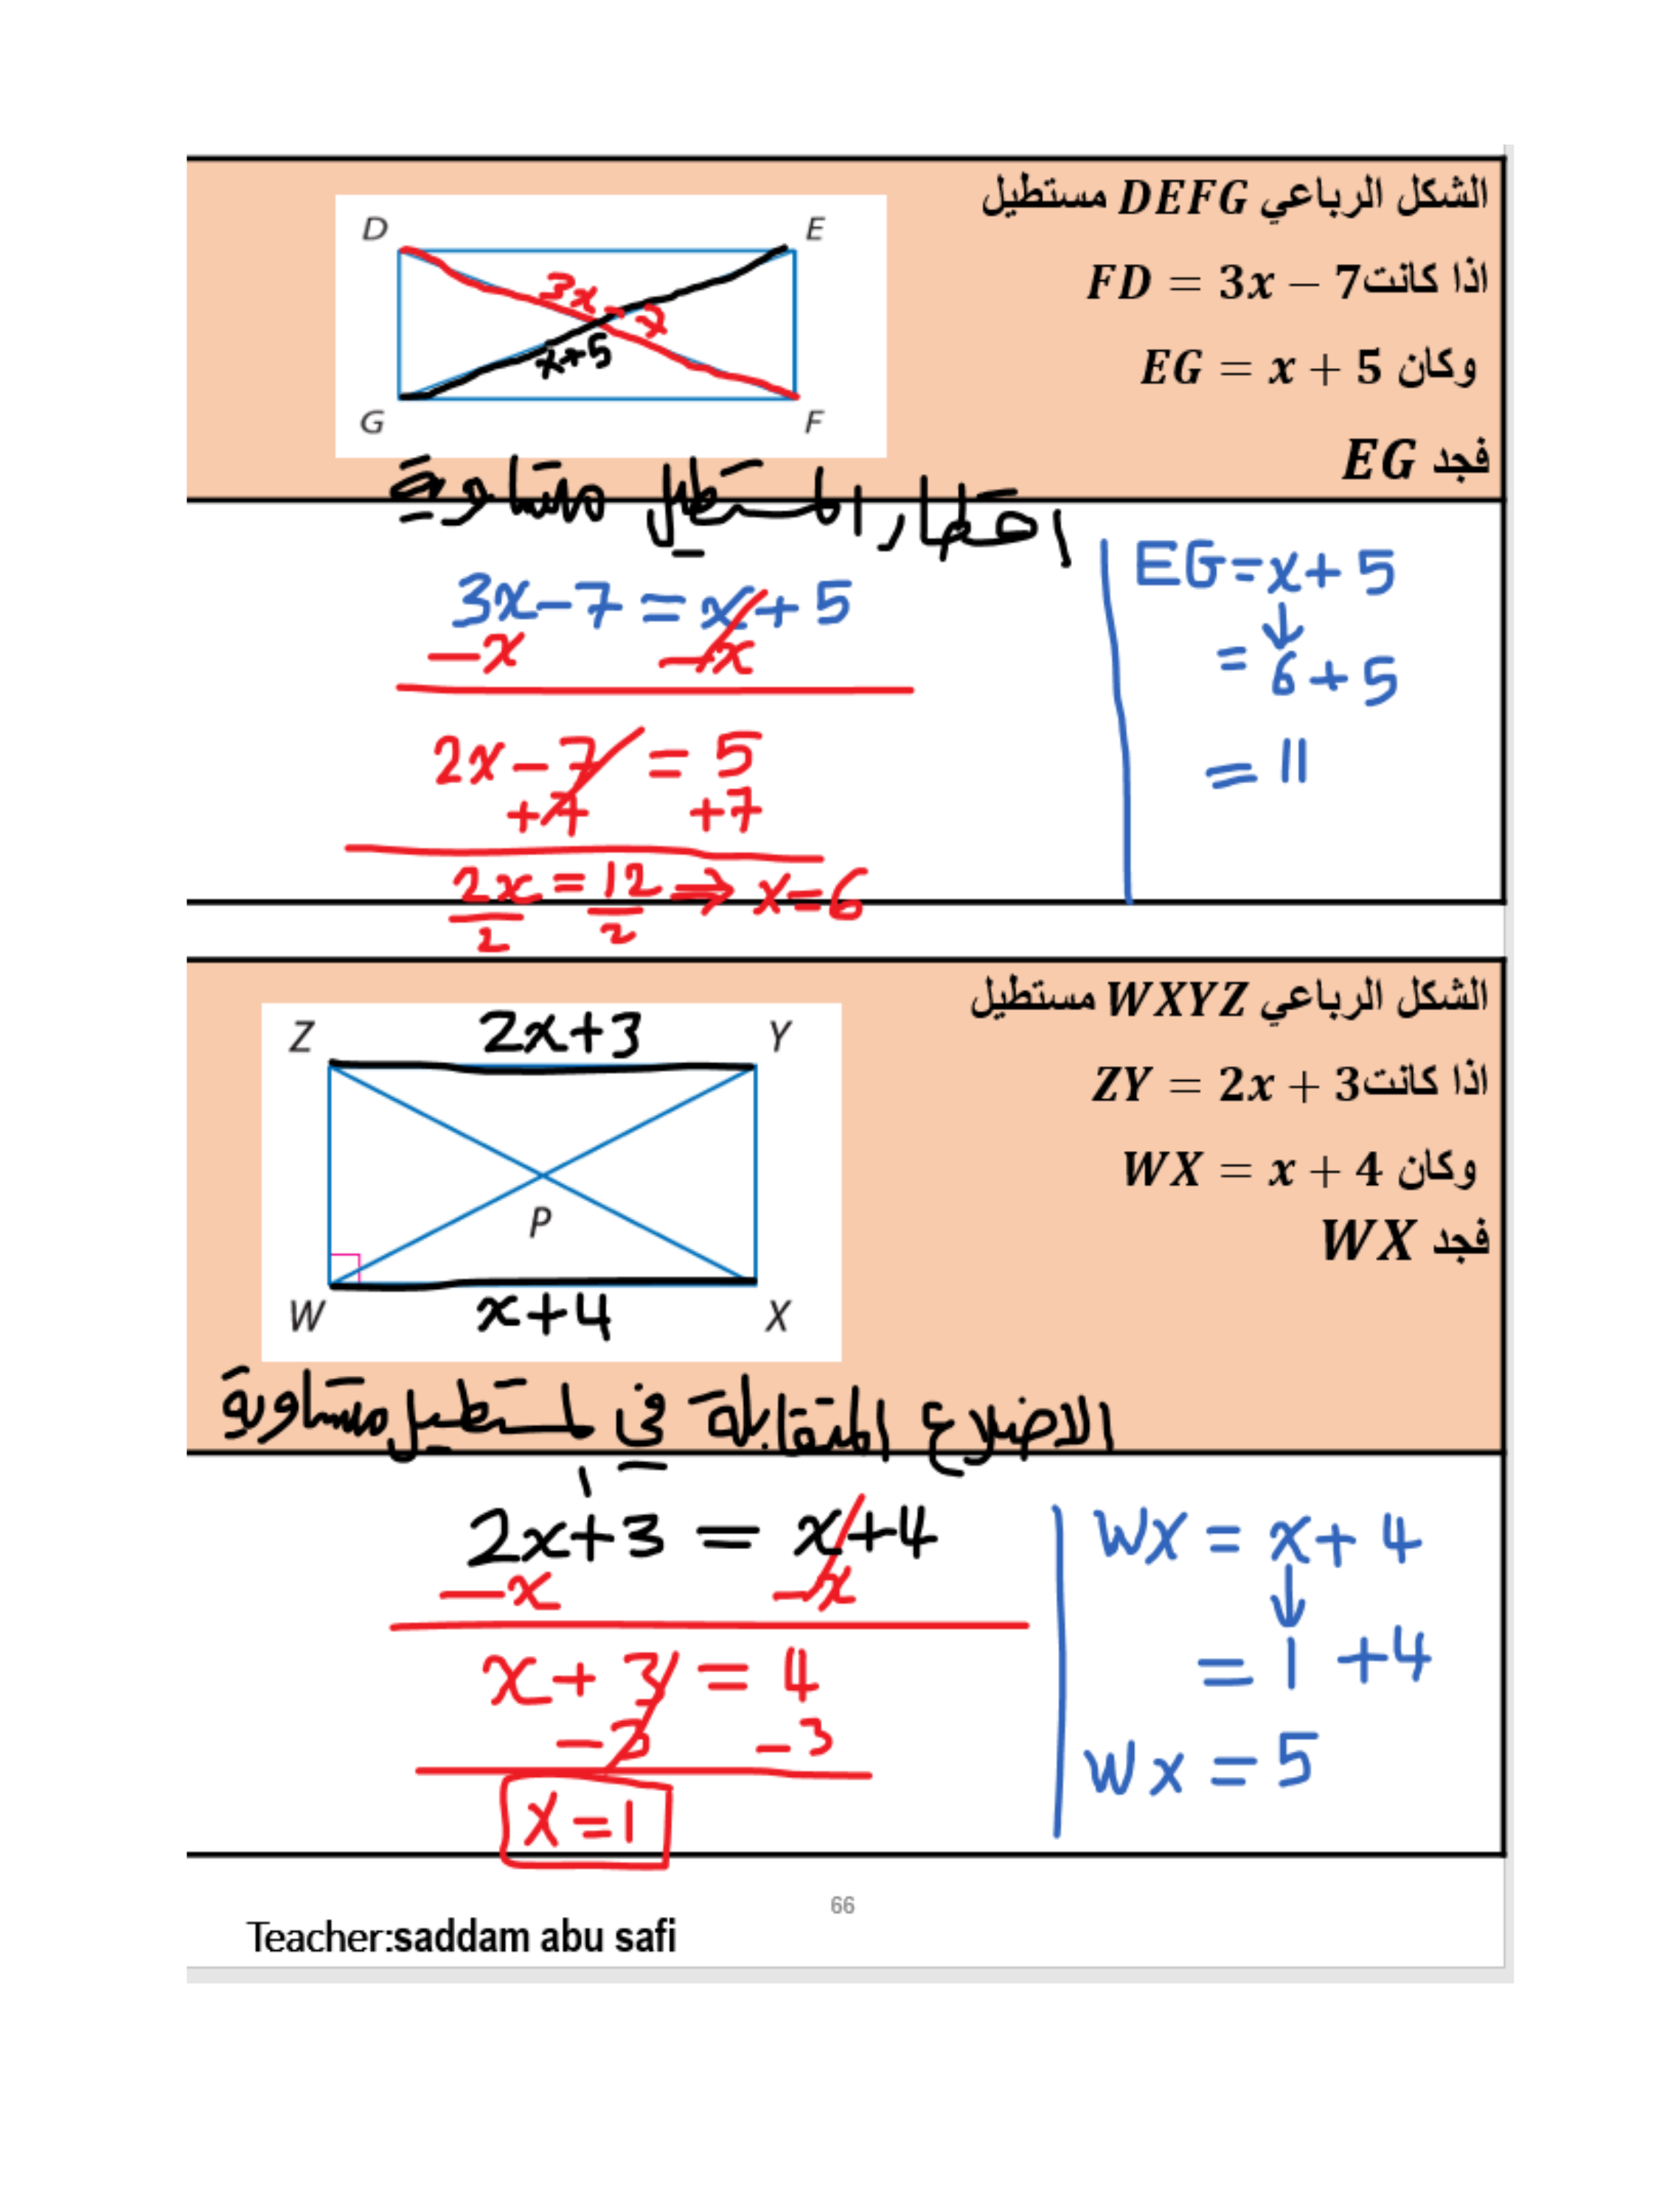 الشكل الرباعي DEFG مستطيل
اذا كانت FD = 3x − 7
وكان EG = x + 5
فجد EG
D
E
3x - 7
x+5
G
F
اقطار المستطيل متساوية
3x-7 = x+5
-x -x
2x-7 = 5
+7 +7
2x/2 = 12/2 ⇒ x=6
EG=x+5
↓
= 6+5
= 11
الشكل الرباعي WXYZ مستطيل
اذا كانت ZY = 2x + 3
وكان WX = x + 4
فجد WX
Z
2x+3
Y
P
W
x+4
X
الاضلاع المتقابلة في المستطيل متساوية
2x+3 = x+4
-x -x
x+3 = 4
-3 -3
x=1
WX = x+4
↓
= 1 +4
Wx = 5
66
Teacher:saddam abu safi